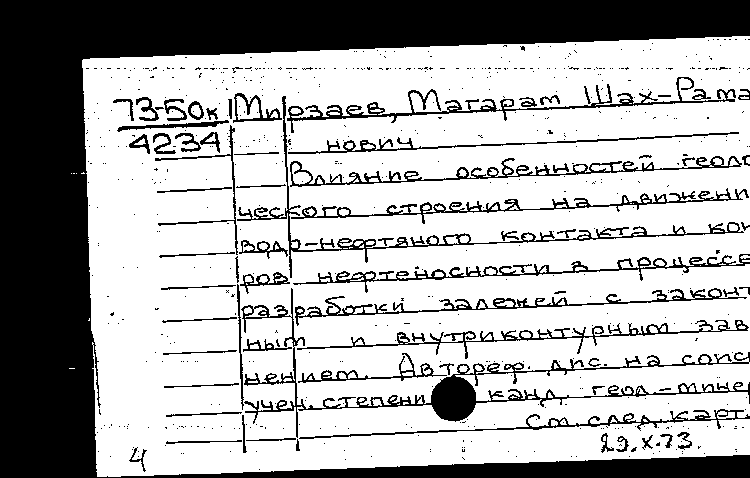 73-50к Мирзаев, Магарам Шах-Рама
4234 нович
Влияние особенностей геоло
ческого строения на движени
водо-нефтяного контакта и кон
ров нефтеносности в процессе
разработки залежей с законт
ным и внутриконтурным зав
нением. Автореф. дис. на соис
учен. степени канд. геол.-минер
См. след. карт.
29.X.73.
4